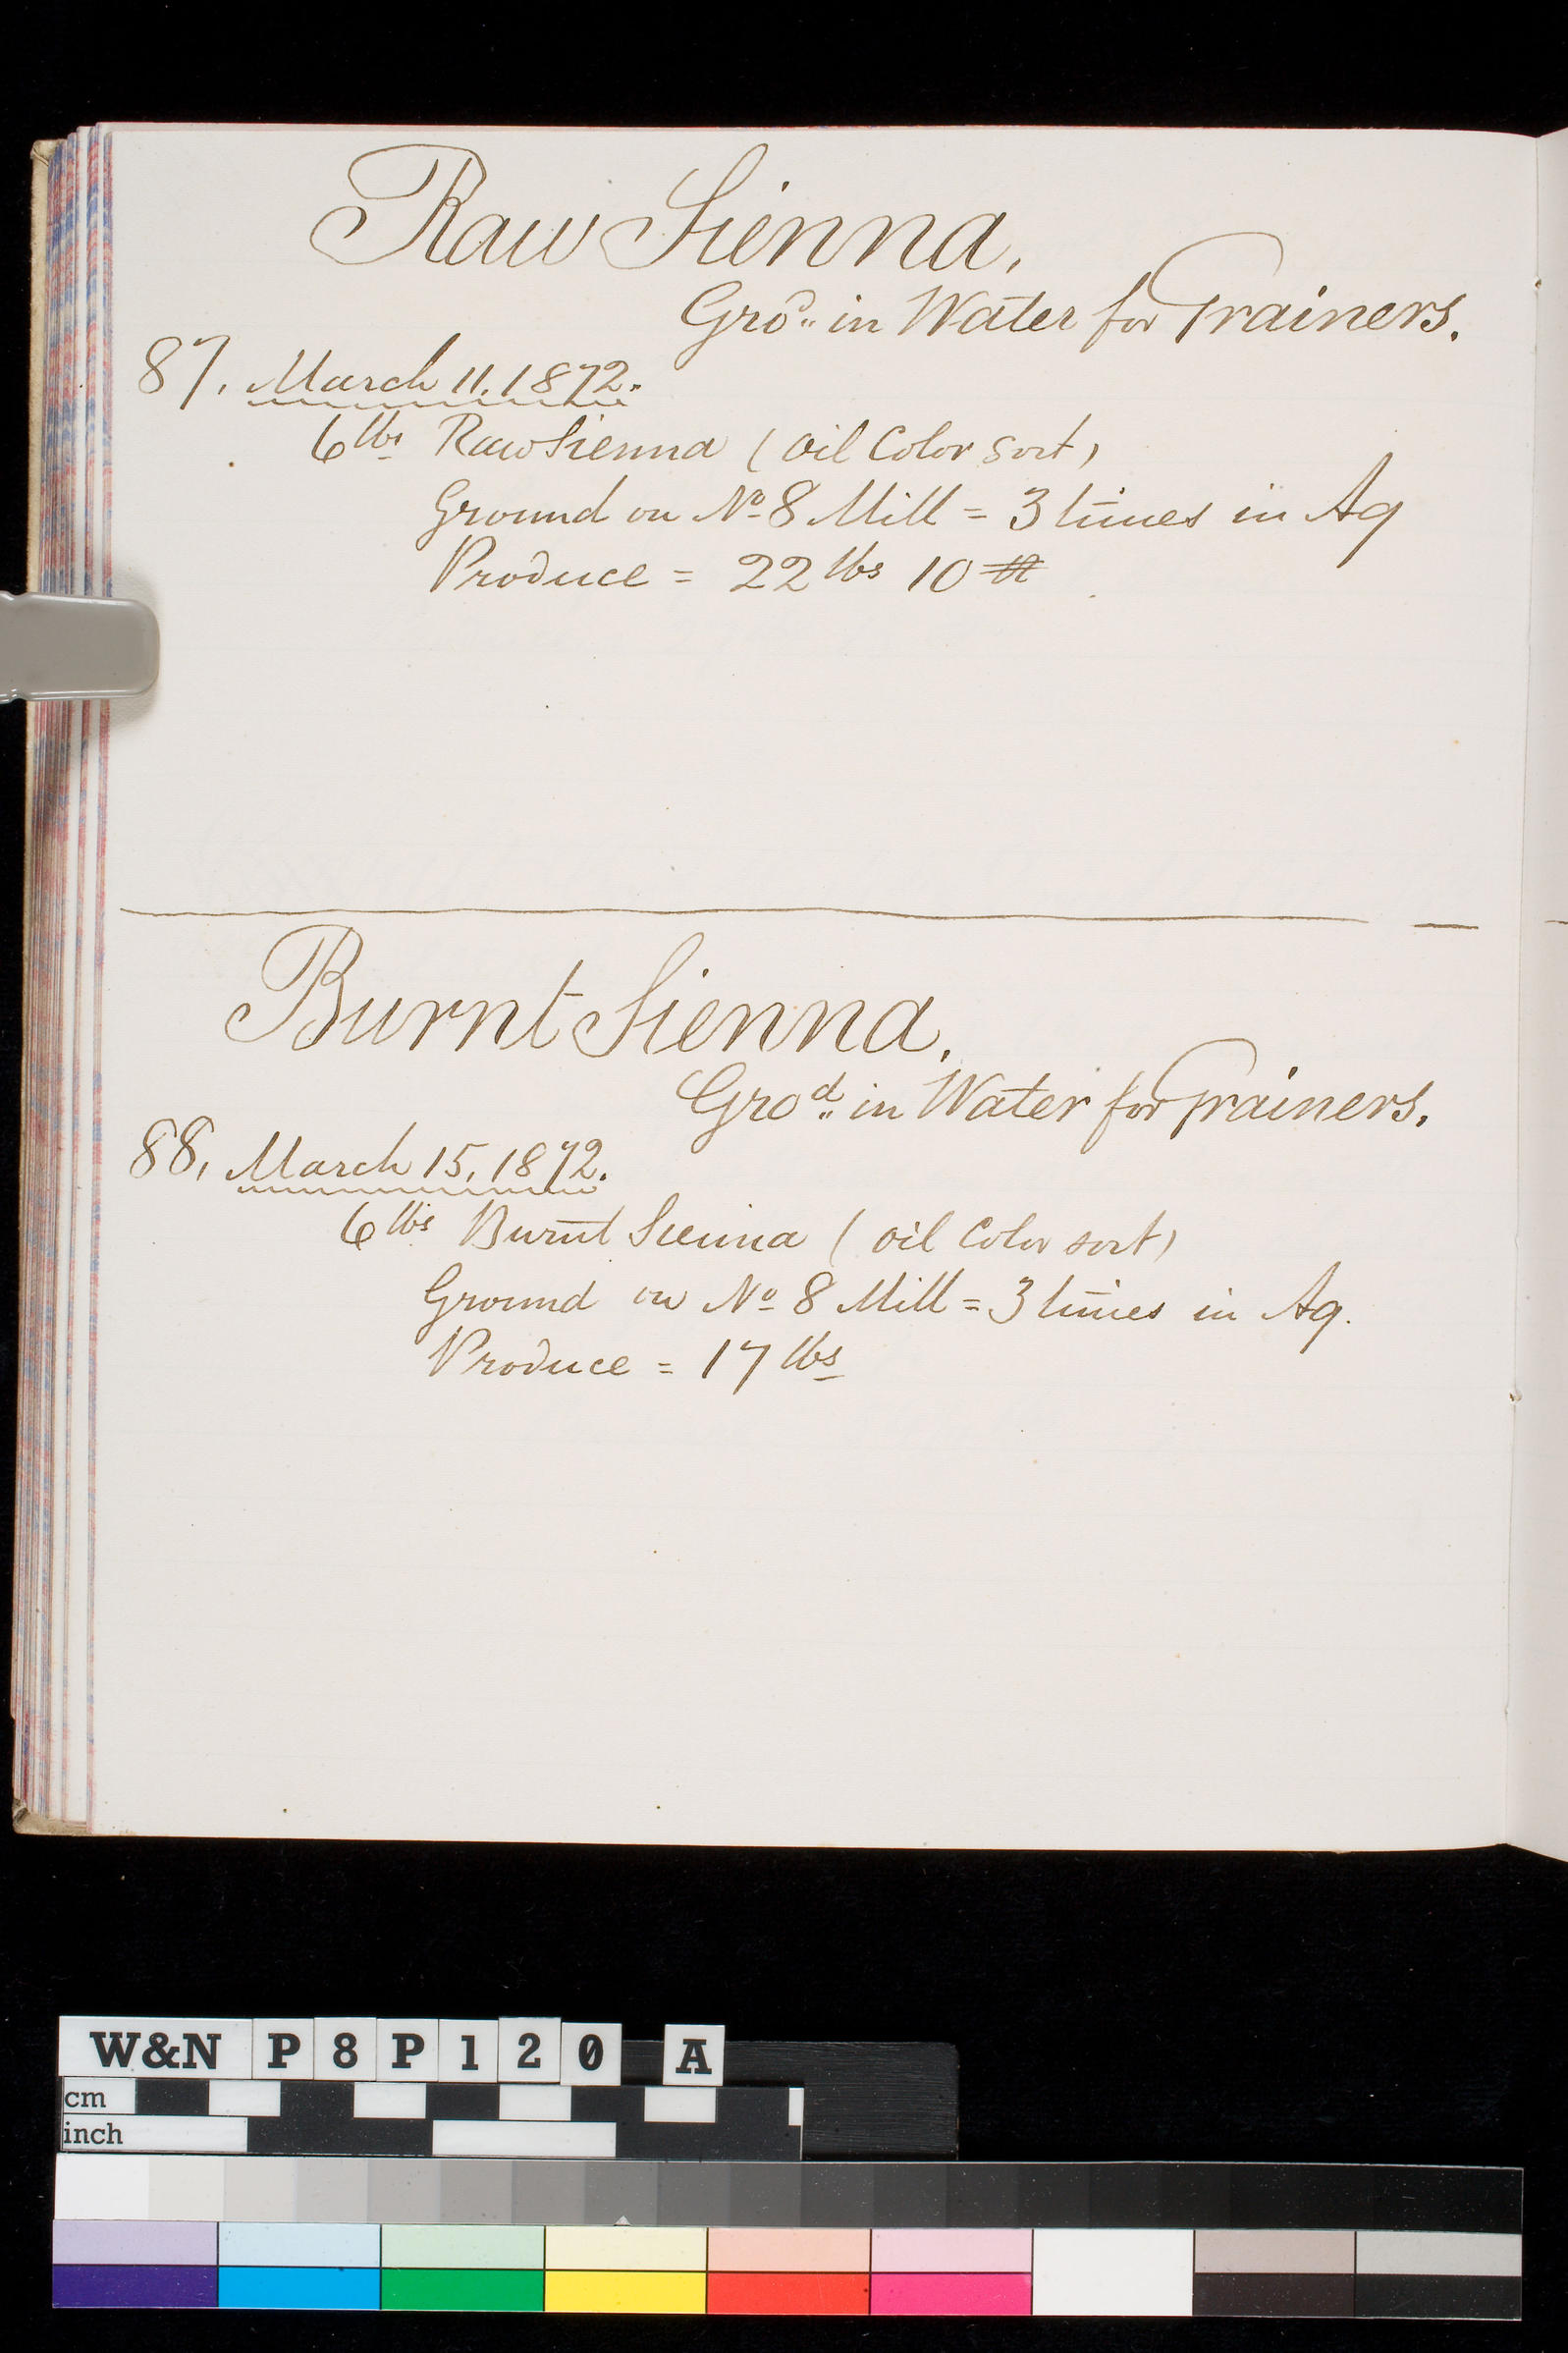 Raw Sienna.
Gro^d in Water for Grainers.
87. March 11. 1872.
6 lbs Raw Sienna (Oil Color sort)
Ground on No 8 Mill = 3 times in Aq
Produce = 22 lbs 10
Burnt Sienna.
Gro^d in Water for Grainers.
88, March 15, 1872.
6 lbs Burnt Sienna (oil Color sort)
Ground on No 8 Mill = 3 times in Aq.
Produce = 17 lbs
W&N P8P120 A
cm
inch